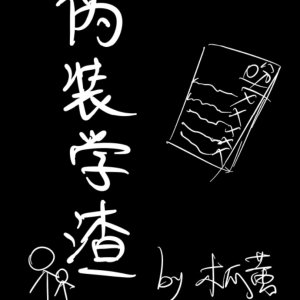 伪装学渣
0分
by 木瓜黄